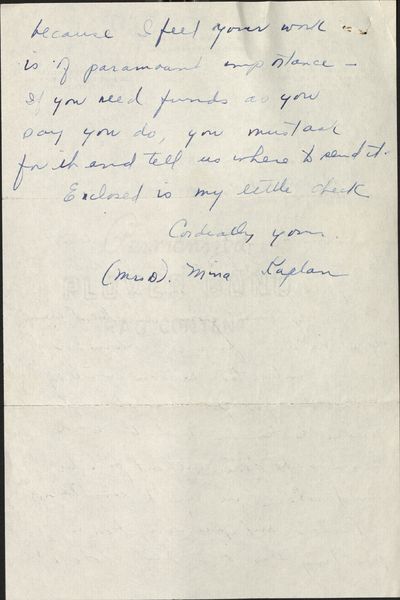 because I feel your work
is of paramount importance -
If you need funds as you
say you do, you must ask
for it and tell us where to send it.
Enclosed is my little check
Cordially yours
(Mrs D). Mina Kaplan